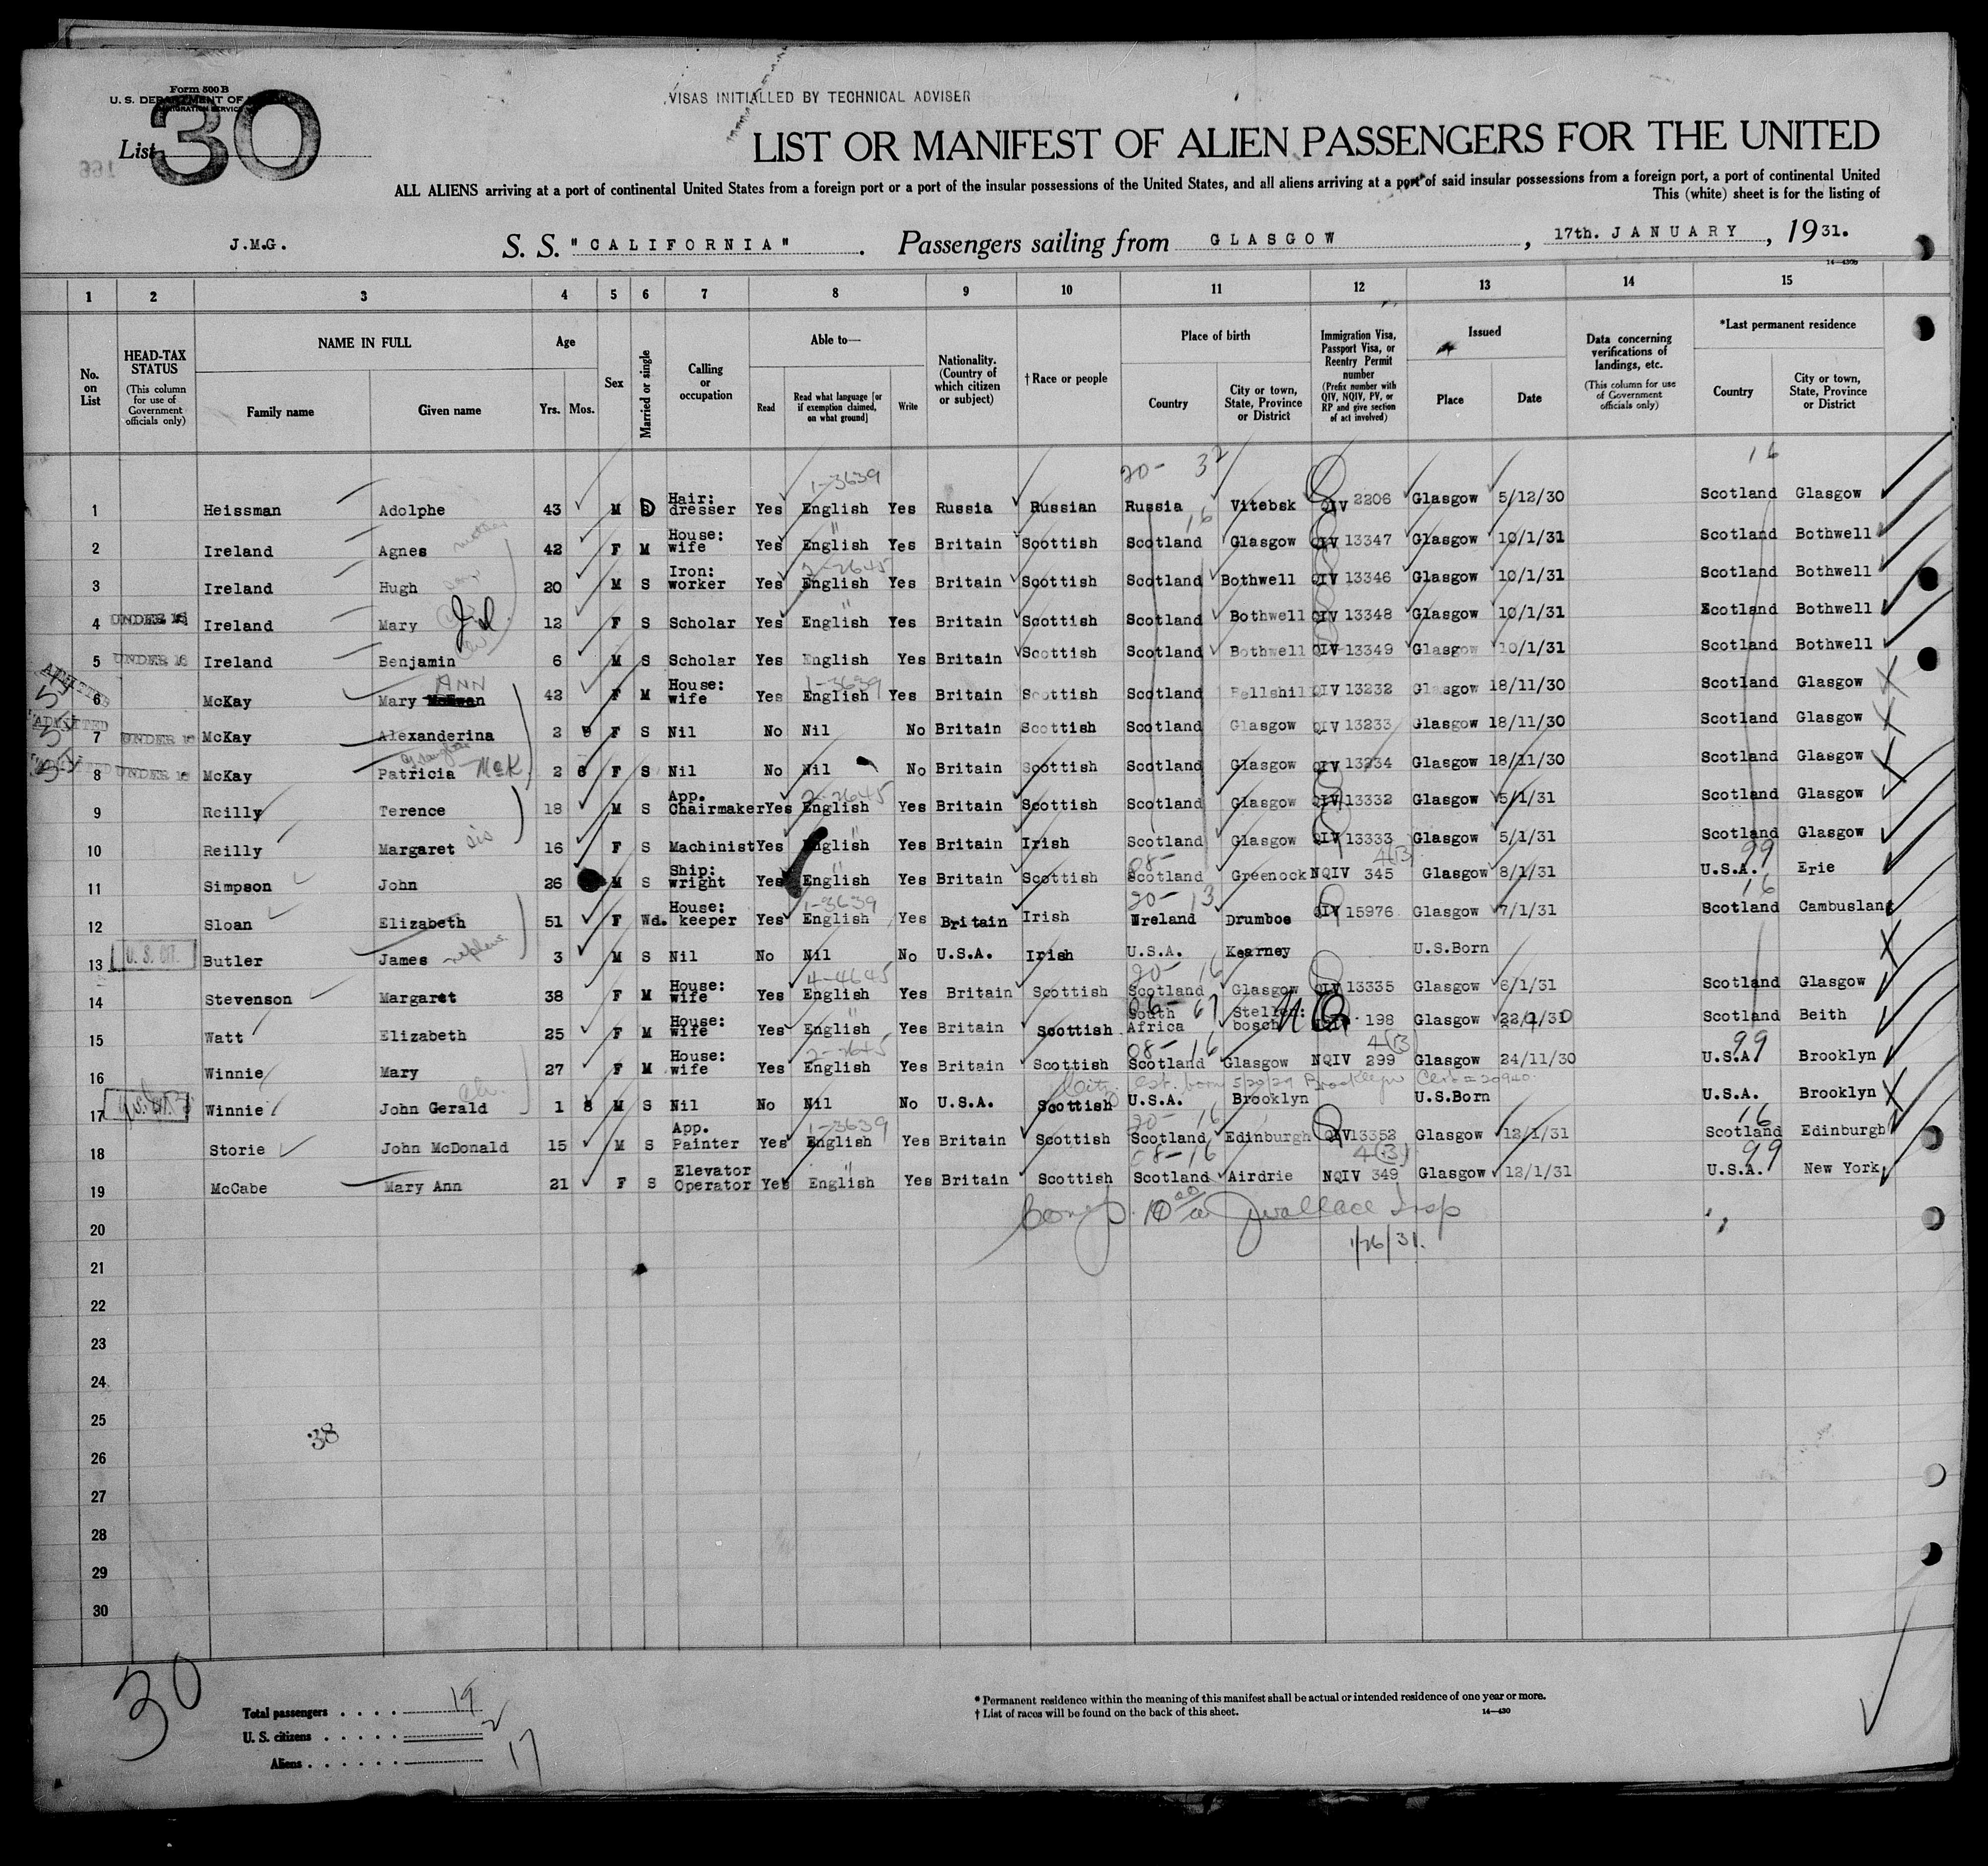 Form 500 B
U. S. DEPARTMENT OF
List 30
VISAS INITIALLED BY TECHNICAL ADVISER
LIST OR MANIFEST OF ALIEN PASSENGERS FOR THE UNITED
ALL ALIENS arriving at a port of continental United States from a foreign port or a port of the insular possessions of the United States, and all aliens arriving at a port of said insular possessions from a foreign port, a port of continental United
This (white) sheet is for the listing of
J.M.G. S. S. "CALIFORNIA". Passengers sailing from GLASGOW, 17th. JANUARY, 1931.
1 2 3 4 5 6 7 8 9 10 11 12 13 14 15
No. on List
HEAD-TAX STATUS (This column for use of Government officials only)
NAME IN FULL Family name Given name
Age Yrs. Mos.
Sex
Married or single
Calling or occupation
Able to— Read Read what language [or if exemption claimed, on what ground] Write
Nationality. (Country of which citizen or subject)
† Race or people
Place of birth Country City or town, State, Province or District
Immigration Visa, Passport Visa, or Reentry Permit number (Prefix number with QIV, NQIV, PV, or RP and give section of act involved)
Issued Place Date
Data concerning verifications of landings, etc. (This column for use of Government officials only)
*Last permanent residence Country City or town, State, Province or District
1-3639 20- 32 16
1 Heissman Adolphe 43 M D Hair: dresser Yes English Yes Russia Russian Russia Vitebsk QIV 2206 Glasgow 5/12/30 Scotland Glasgow
2 Ireland Agnes mother 42 F M House: wife Yes English Yes Britain Scottish Scotland Glasgow QIV 13347 Glasgow 10/1/31 Scotland Bothwell
3 Ireland Hugh 20 M S Iron: worker Yes 2-2645 English Yes Britain Scottish Scotland Bothwell QIV 13346 Glasgow 10/1/31 Scotland Bothwell
4 UNDER 16 Ireland Mary 12 F S Scholar Yes English Yes Britain Scottish Scotland Bothwell QIV 13348 Glasgow 10/1/31 Scotland Bothwell
5 UNDER 16 Ireland Benjamin 6 M S Scholar Yes English Yes Britain Scottish Scotland Bothwell QIV 13349 Glasgow 10/1/31 Scotland Bothwell
ADMITTED 6 McKay Mary ANN 42 F M House: wife Yes 1-3639 English Yes Britain Scottish Scotland Bellshill QIV 13232 Glasgow 18/11/30 Scotland Glasgow
ADMITTED 7 UNDER 16 McKay Alexanderina 2 9 F S Nil No Nil No Britain Scottish Scotland Glasgow QIV 13233 Glasgow 18/11/30 Scotland Glasgow
8 UNDER 16 McKay Patricia McK 2 6 F S Nil No Nil No Britain Scottish Scotland Glasgow QIV 13234 Glasgow 18/11/30 Scotland Glasgow
9 Reilly Terence 18 M S App. Chairmaker Yes 2-2645 English Yes Britain Scottish Scotland Glasgow QIV 13332 Glasgow 5/1/31 Scotland Glasgow
10 Reilly Margaret sis 16 F S Machinist Yes English Yes Britain Irish Scotland Glasgow QIV 13333 Glasgow 5/1/31 Scotland Glasgow
11 Simpson John 26 M S Ship: wright Yes English Yes Britain Scottish 08- Scotland Greenock NQIV 345 4(B) Glasgow 8/1/31 99 U.S.A. Erie
12 Sloan Elizabeth 51 F Wd. House: keeper Yes 1-3639 English Yes Britain Irish 20- 13 Ireland Drumboe QIV 15976 Glasgow 7/1/31 16 Scotland Cambuslang
13 U. S. CIT. Butler James nephew 3 M S Nil No Nil No U.S.A. Irish U.S.A. Kearney U.S.Born
14 Stevenson Margaret 38 F M House: wife Yes 4-4645 English Yes Britain Scottish 20- 16 Scotland Glasgow QIV 13335 Glasgow 6/1/31 Scotland Glasgow
15 Watt Elizabeth 25 F M House: wife Yes English Yes Britain Scottish 06- 67 South Africa Stellen: bosch 198 Glasgow Scotland Beith
16 Winnie Mary 27 F M House: wife Yes 2-2645 English Yes Britain Scottish 08- 16 Scotland Glasgow NQIV 299 4(B) Glasgow 24/11/30 99 U.S.A. Brooklyn
born 5/20/29 Brooklyn
17 U.S. CIT. Winnie John Gerald 1 8 M S Nil No Nil No U.S.A. Scottish U.S.A. Brooklyn U.S.Born U.S.A. Brooklyn
18 Storie John McDonald 15 M S App. Painter Yes 1-3639 English Yes Britain Scottish 20- 16 Scotland Edinburgh QIV 13352 Glasgow 12/1/31 16 Scotland Edinburgh
19 McCabe Mary Ann 21 F S Elevator Operator Yes English Yes Britain Scottish 08-16 Scotland Airdrie NQIV 349 4(B) Glasgow 12/1/31 99 U.S.A. New York
20 Wallace Insp
21 1/26/31.
22
23
24
25
38
26
27
28
29
30
30
Total passengers 19
U. S. citizens 2
Aliens 17
* Permanent residence within the meaning of this manifest shall be actual or intended residence of one year or more.
† List of races will be found on the back of this sheet.
14—430